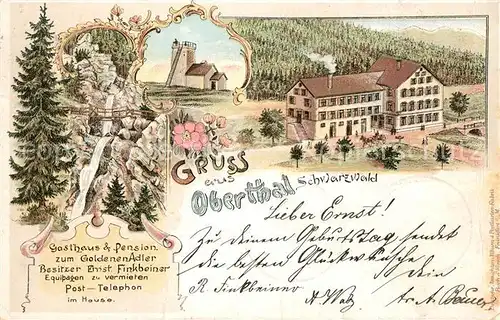 Gruss
aus
Oberthal Schwarzwald
Gasthaus & Pension
zum Goldenen Adler
Besitzer Ernst Finkbeiner
Equipagen zu vermieten
Post-Telephon
im Hause.
Lieber Ernst!
Zu deinem Geburtstag sendet
die besten Glückwünsche
Dein
R. Finkbeiner
A. Walz